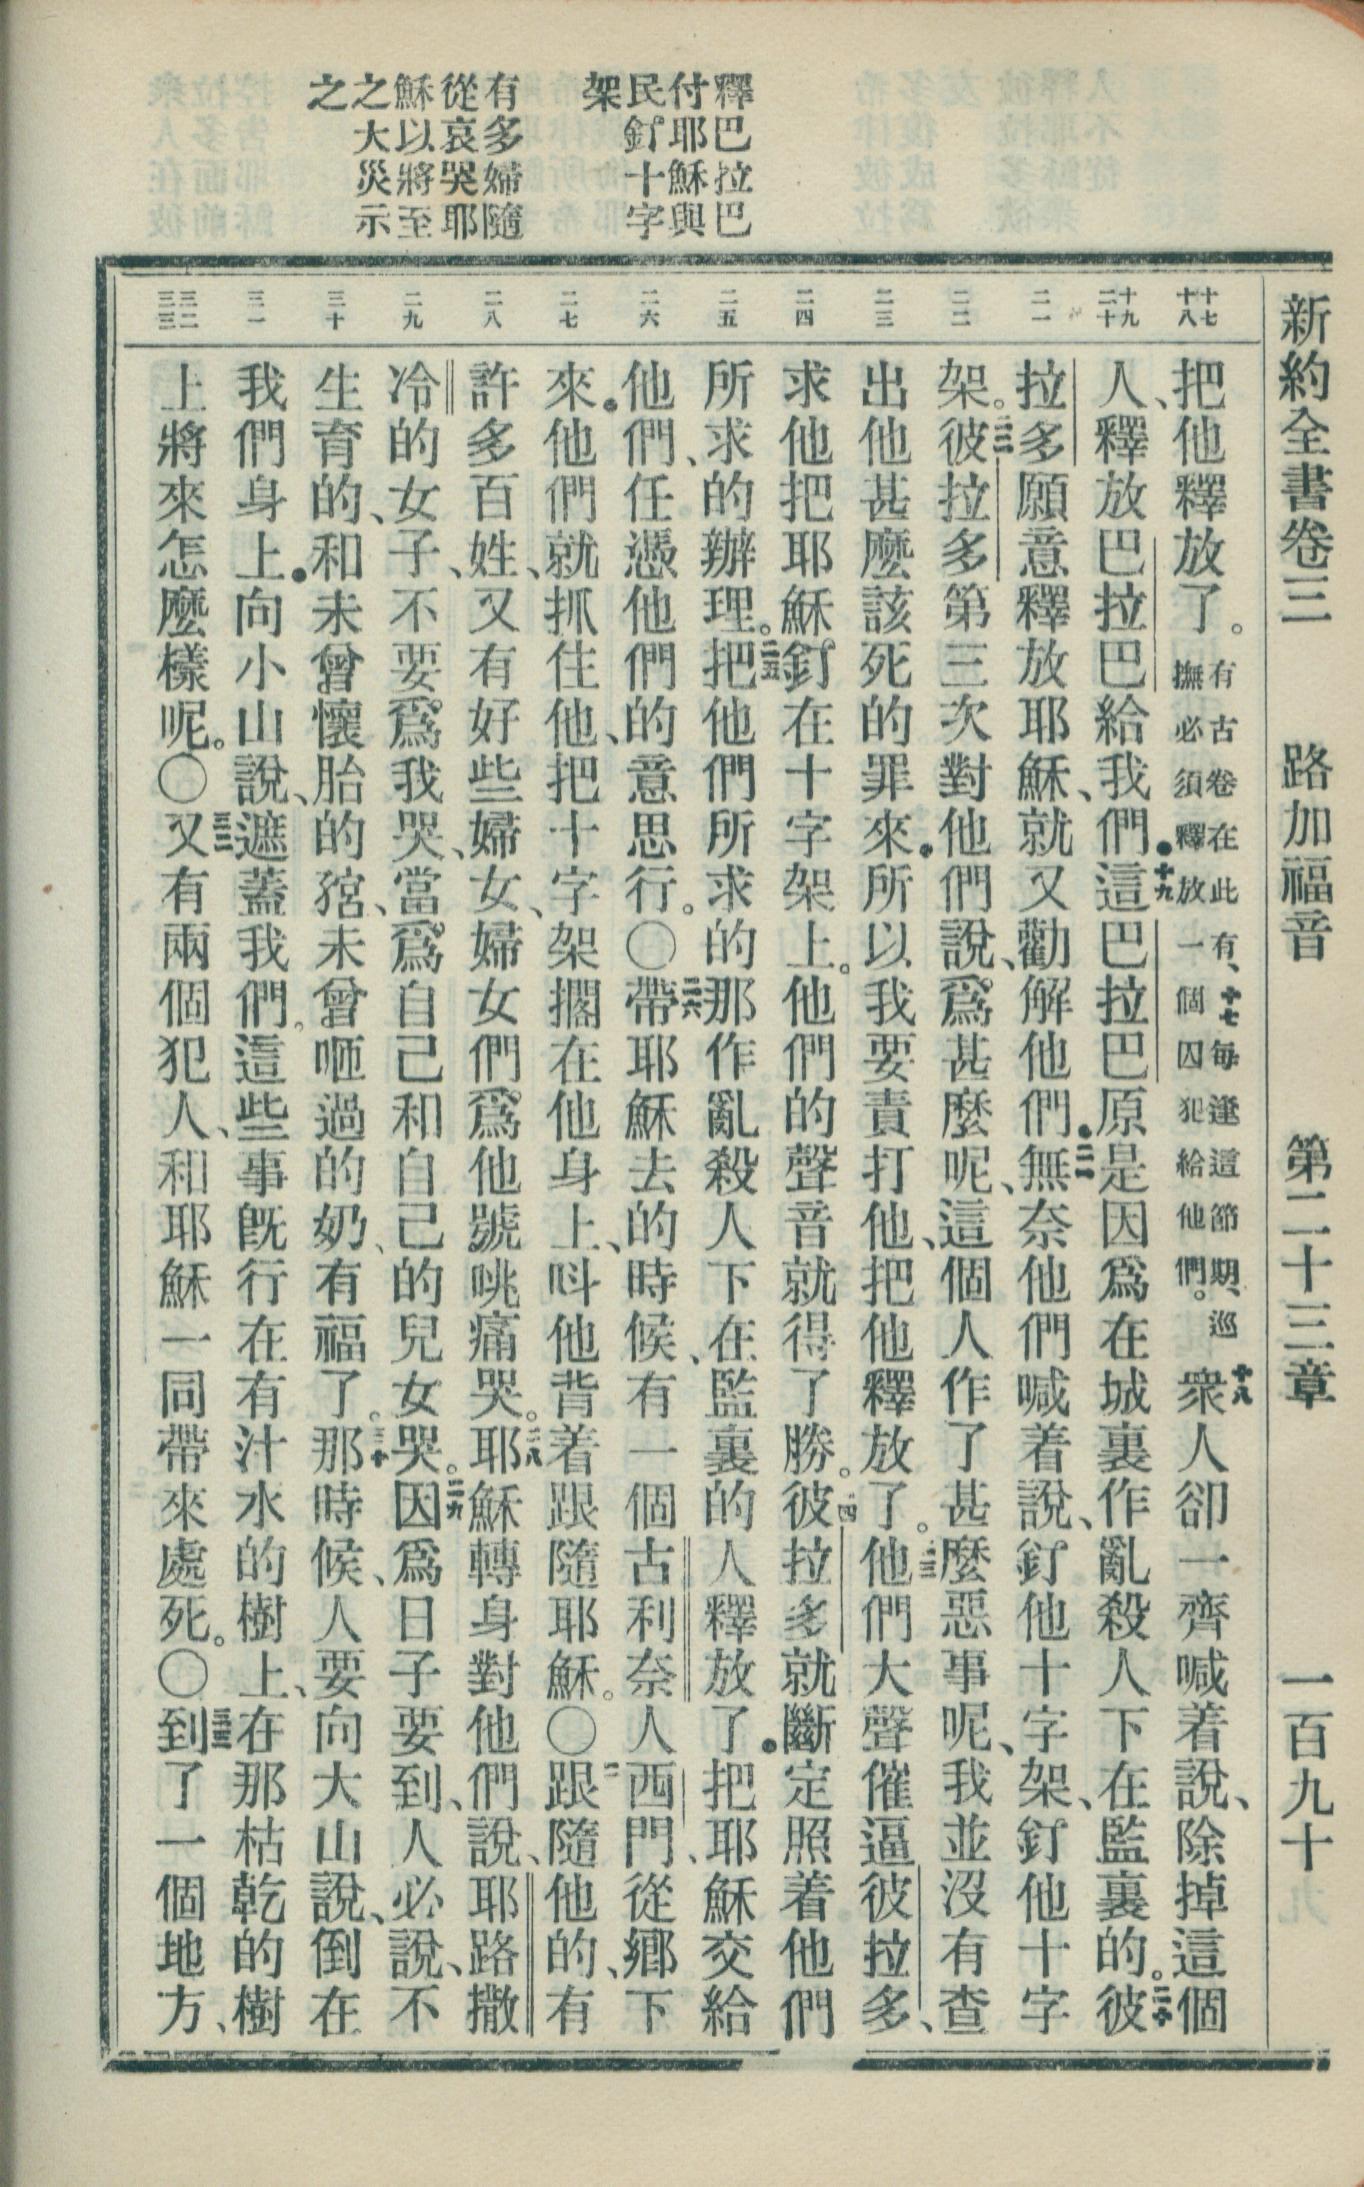 新約全書卷三 路加福音 第二十三章 一百九十九
釋巴拉巴
付耶穌與
民釘十字
架
有多婦隨
從哀哭耶
穌以將至
之大災示
之
十七 十八
十九 二十
二一
二二
二三
二四
二五
二六
二七
二八
二九
三十
三一
三二 三三
把他釋放了。有古卷在此有、十七每逢這節期、巡撫必須釋放一個囚犯給他們。十八衆人卻一齊喊着說、除掉這個
人、釋放巴拉巴給我們●十九這巴拉巴原是因爲在城裏作亂殺人下在監裏的。二十彼
拉多願意釋放耶穌、就又勸解他們●二一無奈他們喊着說、釘他十字架、釘他十字
架。二二彼拉多第三次對他們說、爲甚麼呢、這個人作了甚麼惡事呢、我並沒有查
出他甚麼該死的罪來●所以我要責打他、把他釋放了。二三他們大聲催逼彼拉多、
求他把耶穌釘在十字架上。他們的聲音就得了勝。二四彼拉多就斷定照着他們
所求的辦理。二五把他們所求的那作亂殺人下在監裏的人釋放了●把耶穌交給
他們、任憑他們的意思行。〇二六帶耶穌去的時候、有一個古利奈人西門、從鄉下
來●他們就抓住他、把十字架擱在他身上、呌他背着跟隨耶穌。〇二七跟隨他的、有
許多百姓、又有好些婦女、婦女們爲他號咷痛哭。二八耶穌轉身對他們說、耶路撒
冷的女子、不要爲我哭、當爲自己和自己的兒女哭。二九因爲日子要到、人必說、不
生育的、和未曾懷胎的、未曾咂過的奶、有福了。三十那時候、人要向大山說、倒在
我們身上●向小山說、遮蓋我們。三一這些事既行在有汁水的樹上、在那枯乾的樹
上將來怎麼樣呢。〇三二又有兩個犯人、和耶穌一同帶來處死。〇三三到了一個地方、